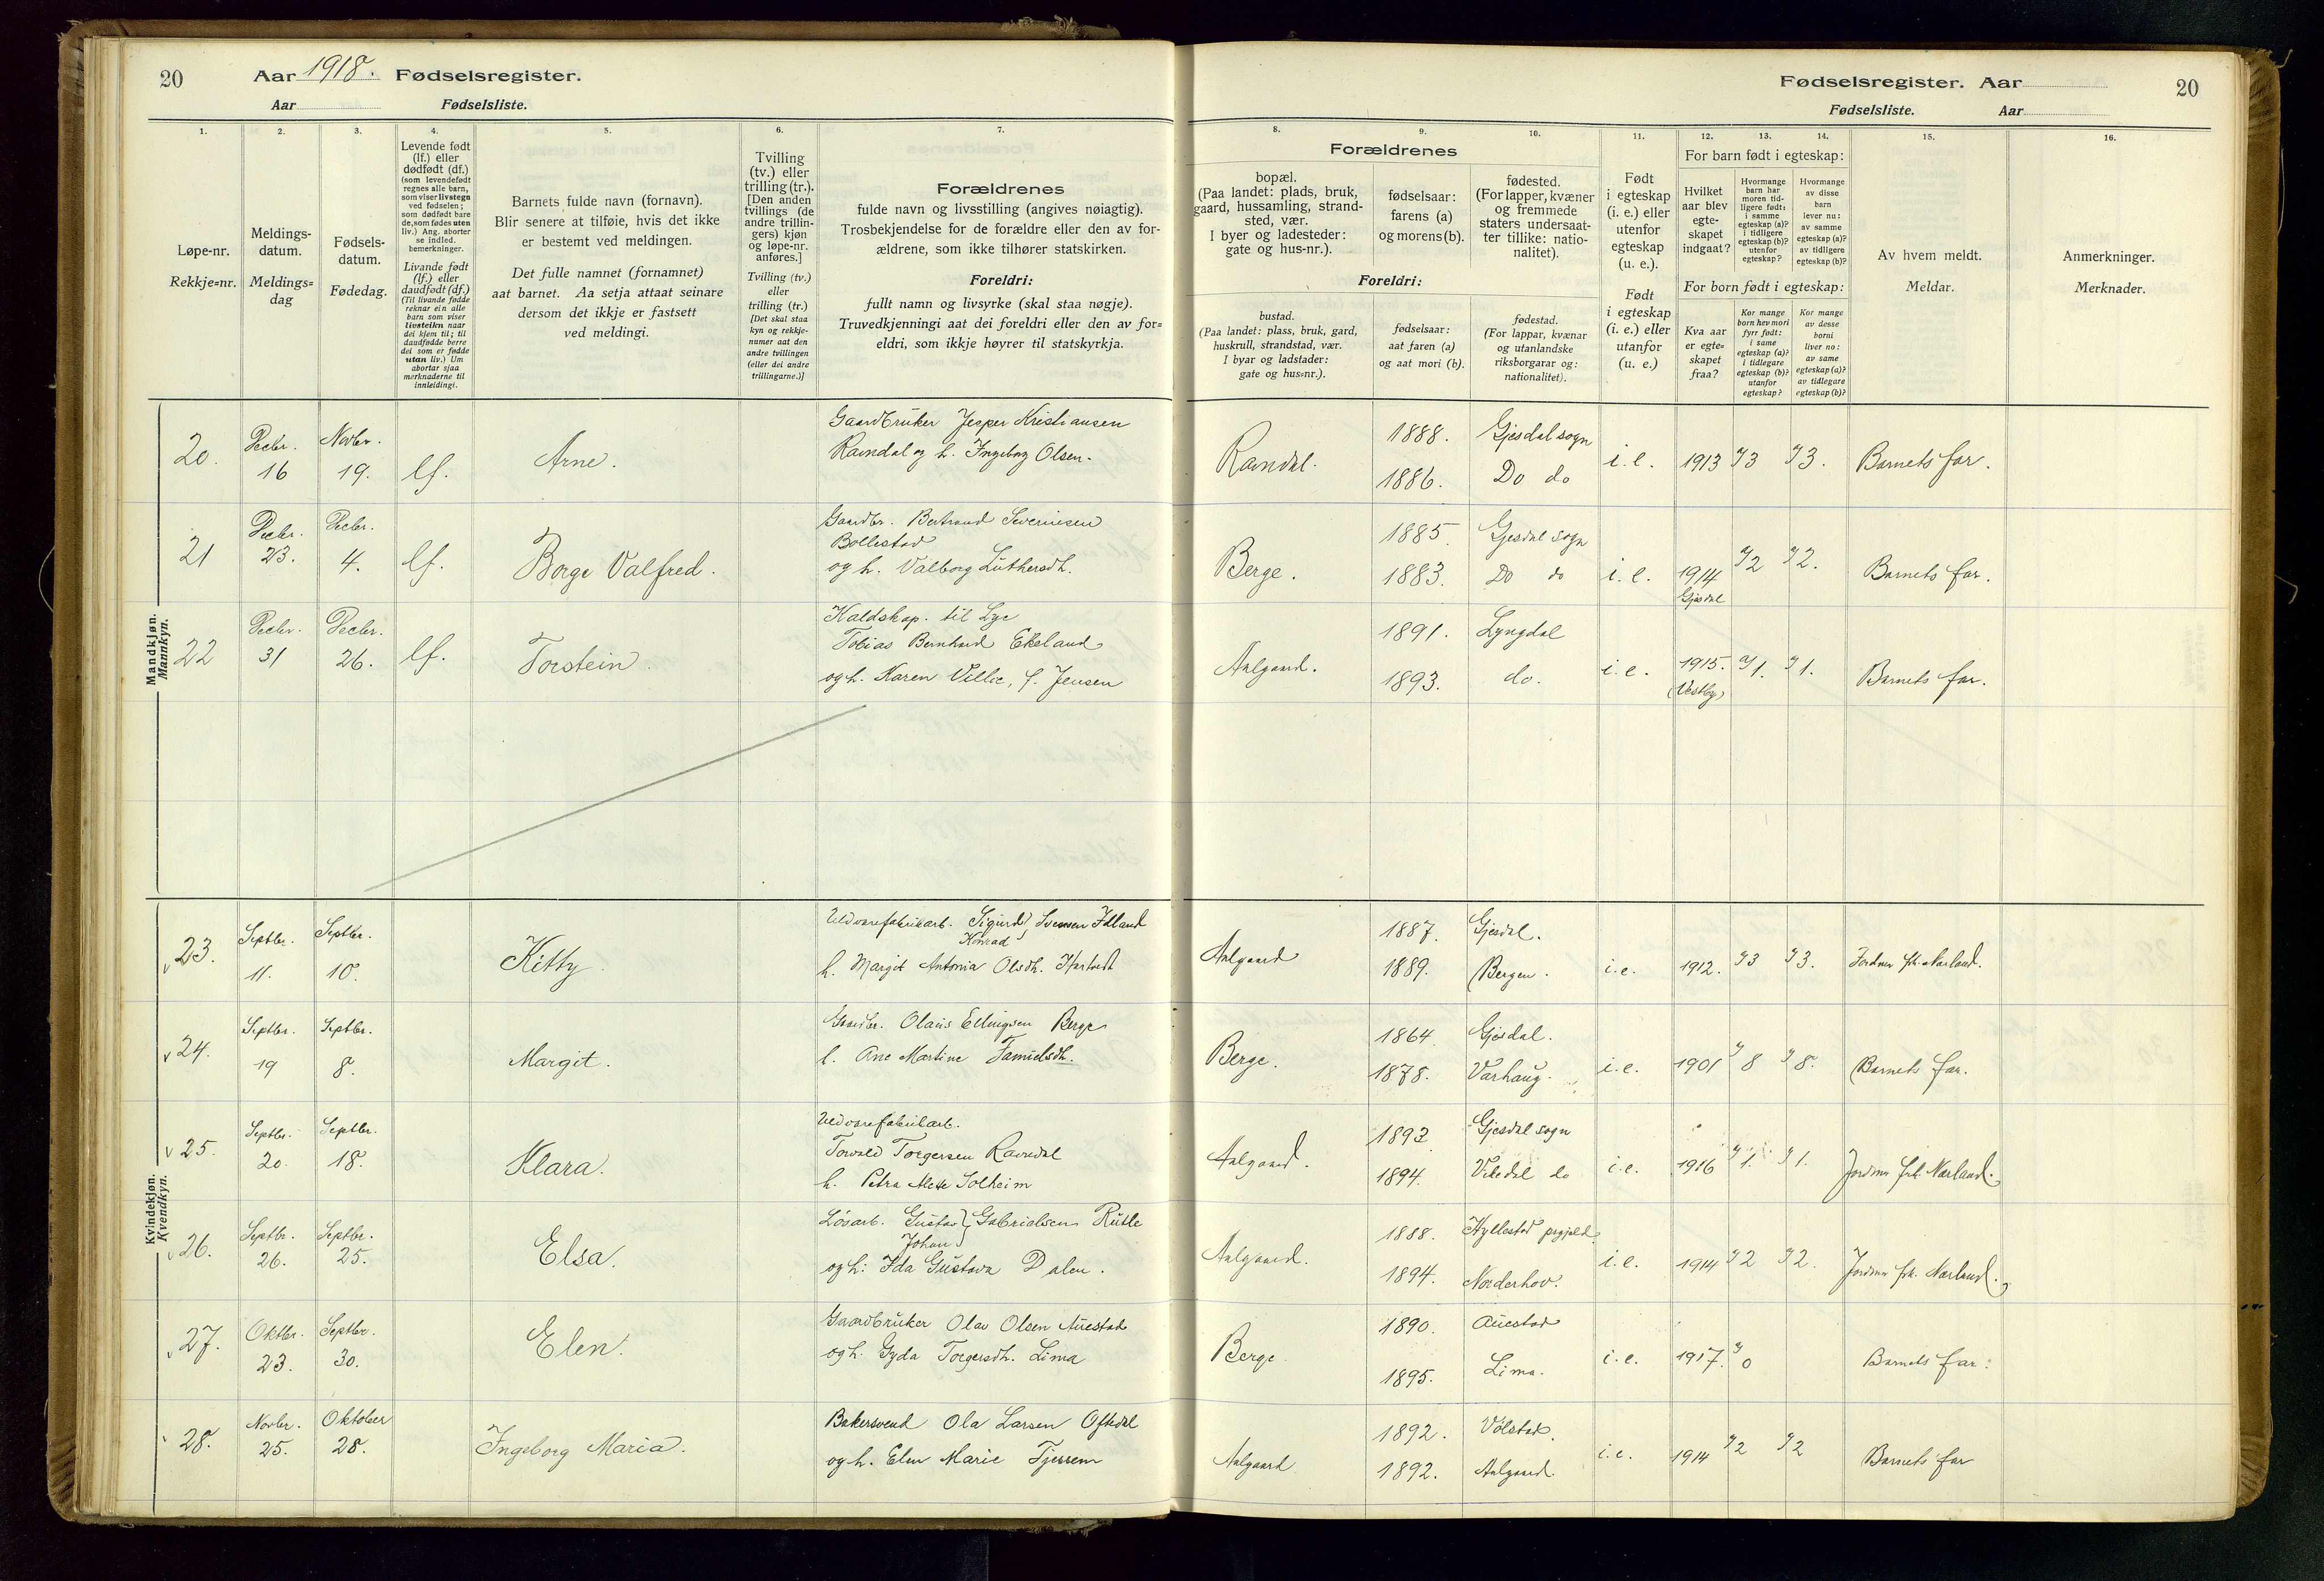 20
Aar 1918. Fødselsregister.
Aar Fødselsliste.
Fødselsregister. Aar
20
Fødselsliste. Aar
1. 2. 3. 4. 5. 6. 7. 8. 9. 10. 11. 12. 13. 14. 15. 16.
Løpe-nr.
Rekkje=nr.
Meldings-
datum.
Meldings=
dag
Fødsels-
datum.
Fødedag.
Levende født
(lf.) eller
dødfødt (df.)
(som levendefødt
regnes alle barn,
som viser livstegn
ved fødselen;
som dødfødt bare
de, som fødes uten
liv.) Ang. aborter
se indled.
bemerkninger.
Livande født
(lf.) eller
daudfødt (df.)
(Til livande fødde
reknar ein alle
barn som viser
livsteikn naar
dei kjem til; til
daudfødde berre
dei som er fødde
utan liv.) Um
abortar sjaa
merknaderne til
innleidingi.
Barnets fulde navn (fornavn).
Blir senere at tilføie, hvis det ikke
er bestemt ved meldingen.
Det fulle namnet (fornamnet)
aat barnet. Aa setja attaat seinare
dersom det ikkje er fastsett
ved meldingi.
Tvilling
(tv.) eller
trilling (tr.).
[Den anden
tvillings (de
andre trillin-
gers) kjøn
og løpe-nr.
anføres.]
Tvilling (tv.)
eller
trilling (tr.)
[Det skal staa
kyn og rekkje-
numer aat den
andre tvillingen
(eller dei andre
trillingarne.)]
Forældrenes
fulde navn og livsstilling (angives nøiagtig).
Trosbekjendelse for de forældre eller den av for-
ældrene, som ikke tilhører statskirken.
Foreldri:
fullt namn og livsyrke (skal staa nøgje).
Truvedkjenningi aat dei foreldri eller den av for=
eldri, som ikkje høyrer til statskyrkja.
Forældrenes
bopæl.
(Paa landet: plads, bruk,
gaard, hussamling, strand-
sted, vær.
I byer og ladesteder:
gate og hus-nr.).
fødselsaar:
farens (a)
og morens (b).
fødested.
(For lapper, kvæner
og fremmede
staters undersaat-
ter tillike: natio-
nalitet).
Foreldri:
bustad.
(Paa landet: plass, bruk, gard,
huskrull, strandstad, vær.
I byar og ladstader:
gate og hus=nr.).
fødselsaar:
aat faren (a)
og aat mori (b).
fødestad.
(For lappar, kvænar
og utanlandske
riksborgarar og:
nationalitet).
Født
i egteskap
(i. e.) eller
utenfor
egteskap
(u. e.).
Født
i egteskap
(i. e.) eller
utanfor
(u. e.)
For barn født i egteskap:
Hvilket
aar blev
egte-
skapet
indgaat?
Hvormange
barn har
moren tid-
ligere født:
i samme
egteskap (a)?
i tidligere
egteskap (b)?
utenfor
egteskap?
Hvormange
av disse
barn
lever nu:
av samme
egteskap (a)?
av tidligere
egteskap (b)?
For born født i egteskap:
Kva aar
er egte=
skapet
fraa?
Kor mange
born hev mori
fyrr født:
i same
egteskap (a)?
i tidlegare
egteskap (b)?
utanfor
egteskap?
Kor mange
av desse
borni
liver no:
av same
egteskap (a)?
av tidlegare
egteskap (b)?
Av hvem meldt.
Meldar.
Anmerkninger.
Merknader.
Mandkjøn.
Mannkyn.
20. Decbr. 16 Novbr. 19. lf. Arne.
Gaardbruker Jesper Kristiansen
Ravndal og h. Ingeborg Olsen.
Ravndal. 1888. 1886. Gjesdal sogn Do do i. e. 1913 3 3. Barnets far.
21 Decbr. 23. Decbr. 4. lf. Borge Valfred.
Gaardbr. Bertrand Severinsen
Bollestad
og h. Valborg Luthersdh.
Berge. 1885. 1883. Gjesdal sogn Do do i. e. 1914 Gjesdal 2 2. Barnets far.
22 Decbr. 31 Decbr. 26. lf. Torstein.
til Lye
Tobias Bernhard Ekeland
og h. Karen Villie, f. Jensen
Aalgaard. 1891. 1893. Lyngdal do. i. e. 1915. (Vestby) 1. 1. Barnets far.
Kvindekjøn.
Kvendkyn.
23. Septbr. 11. Septbr. 10. Kitty.
Uldvarefabrikarb. Sigurd Konrad Svensen Idland
h. Margit Antonia Olsdh.
Aalgaard 1887. 1889. Gjesdal. Bergen. i. e. 1912. 3 3. Jordmor frk. Nærland.
24. Septbr. 19 Septbr. 8. Margit.
Gaardbr. Olaus Ellingsen Berge
h. Ane Martine
Berge. 1864 1878. Gjesdal. Varhaug. i. e. 1901 8 8. Barnets far.
25. Septbr. 20. Septbr. 18. Klara.
Uldvarefabrikarb.
Torvald Torgersen Ravndal
h. Petra Mette Solheim
Aalgaard. 1893 1894. Gjesdal sogn Vikedal do i. e. 1916 1. 1. Jordmor frk. Nærland.
26. Septbr. 26. Septbr. 25. Elsa.
Løsarb. Gustav Johan Gabrielsen Rutle
og h: Ida Gustava Dalen.
Aalgaard. 1888. 1894. Hyllestad prgjeld. Norderhov. i. e. 1914 2 2. Jordmor frk. Nærland.
27. Oktbr. 23. Septbr. 30. Elen.
Gaardbruker Olav Olsen Auestad
og h. Gyda Torgersdh. Lima
Berge. 1890. 1895. Auestad Lima. i. e. 1917. 0 Barnets far.
28. Novbr. 25. Oktober 28. Ingeborg Maria.
Bakersvend Ola Larsen Oftedal
og h. Elen Marie Tjessem
Aalgaard 1892. 1892. Volstad. Aalgaard. i. e. 1914 2 2 Barnets far